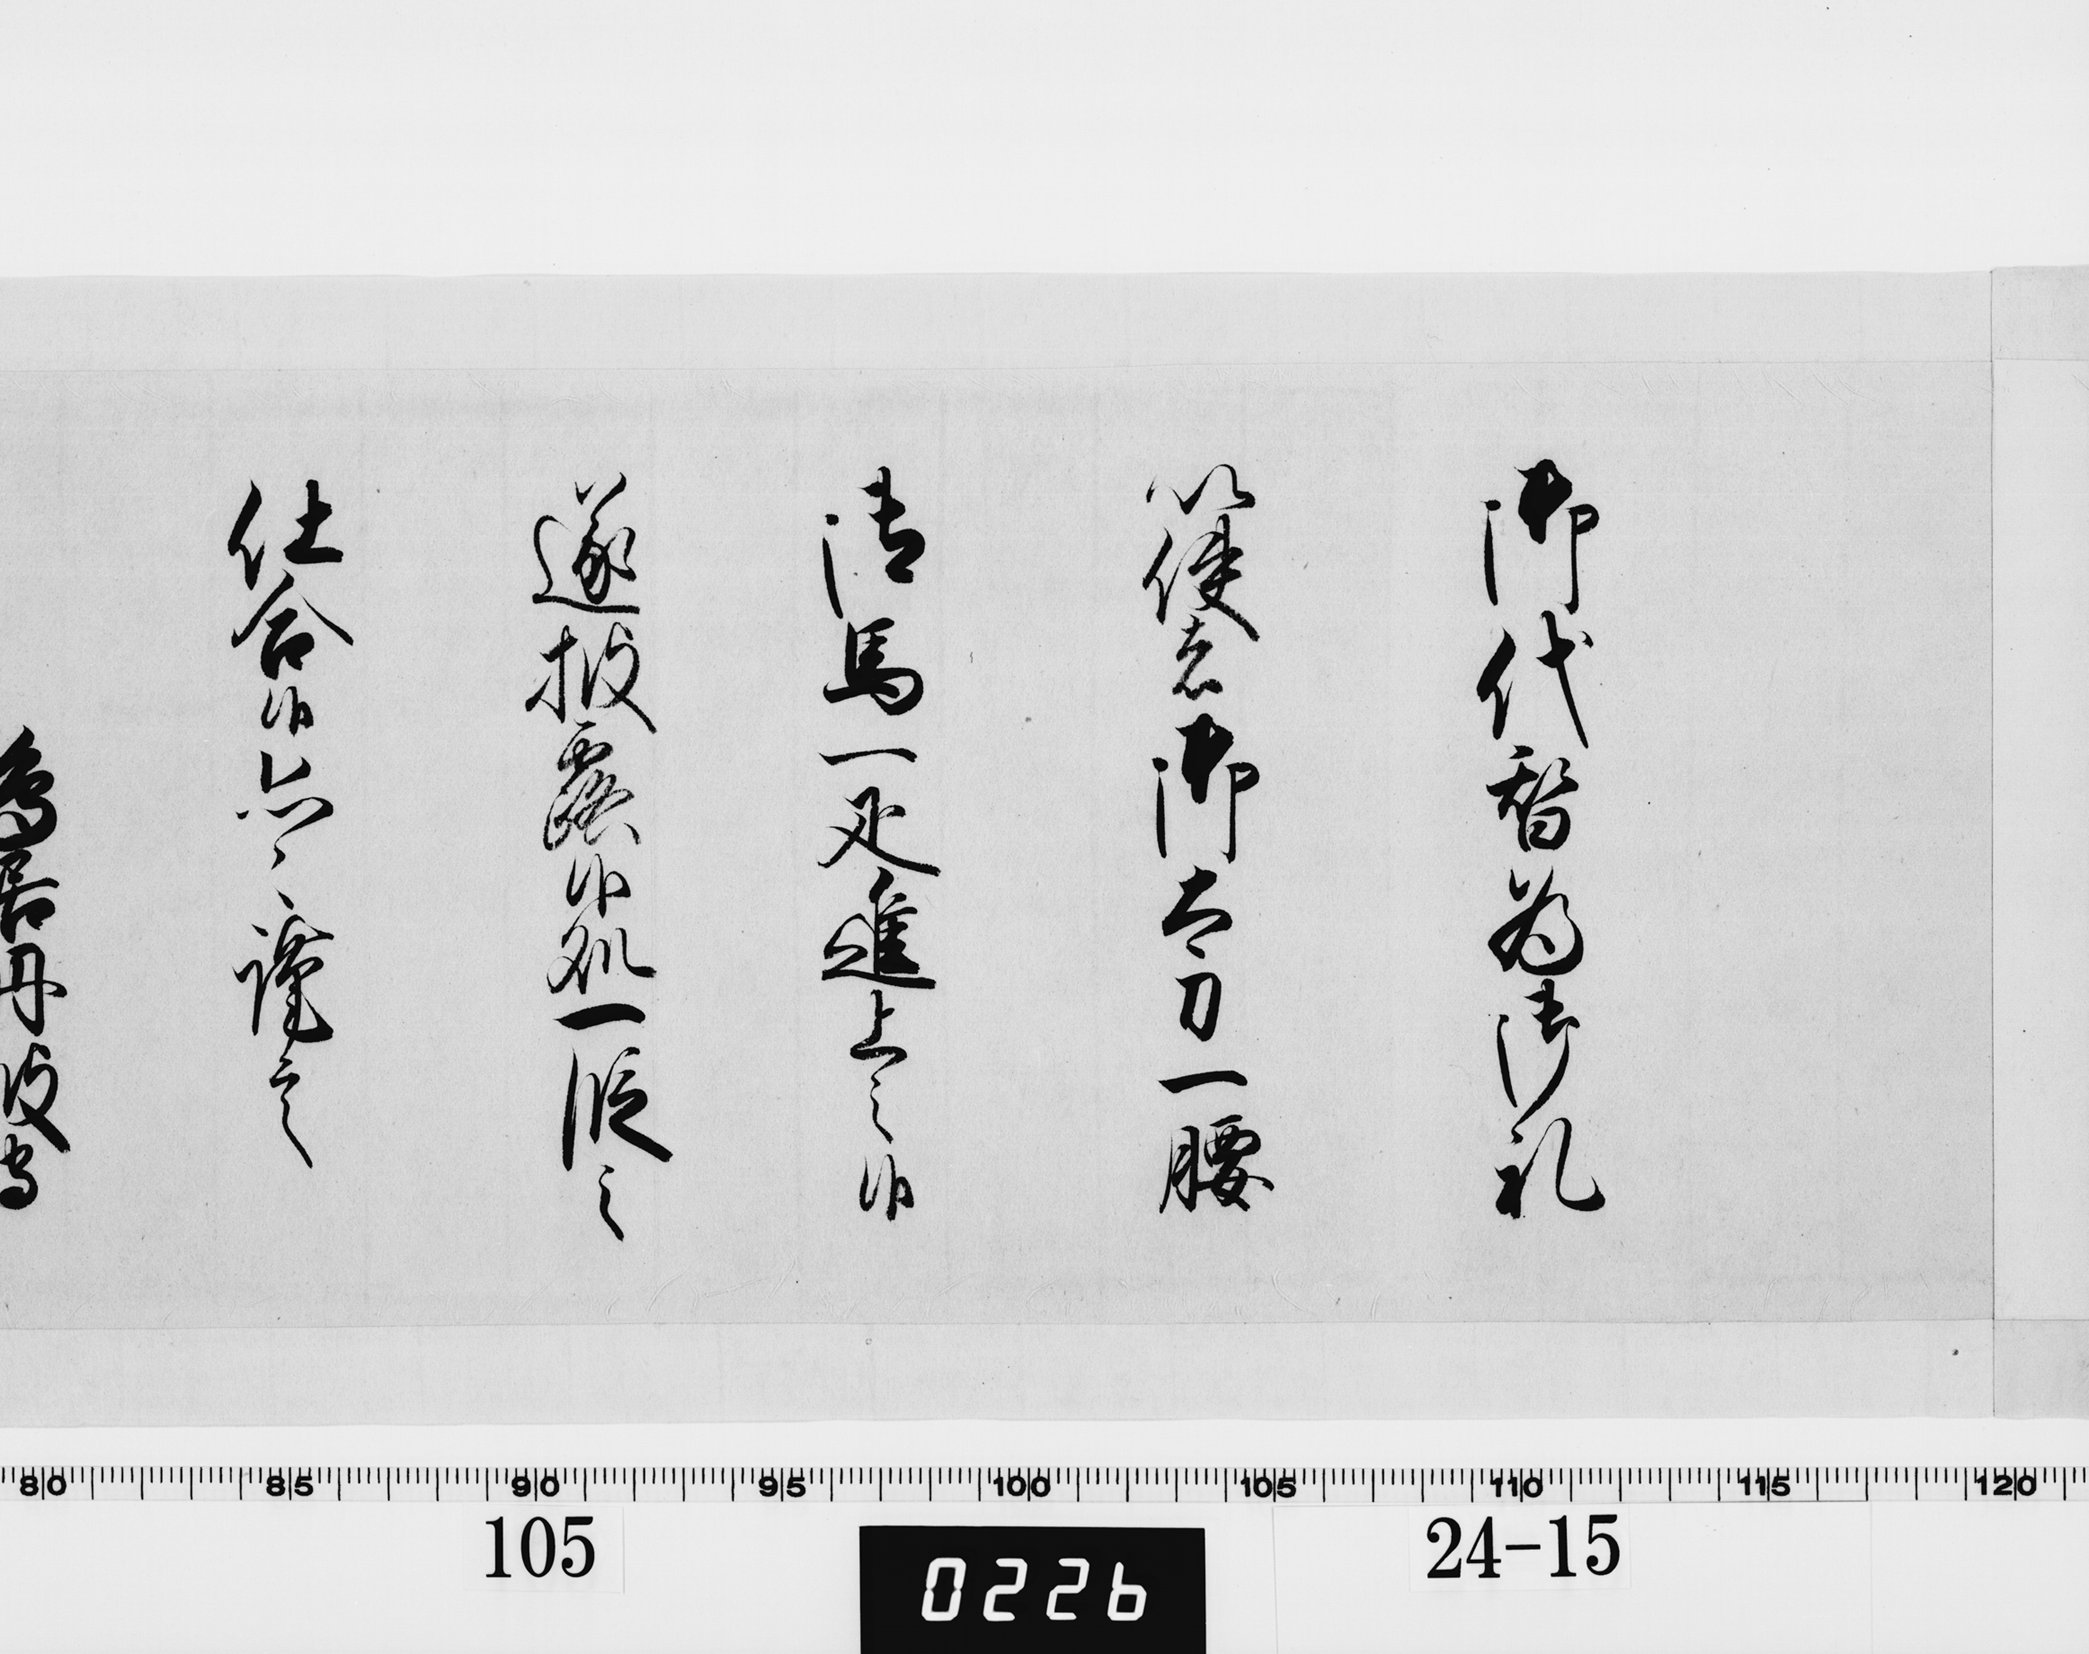 御代替為御礼
以使者御太刀一腰
御馬一疋進上之候
遂披露候処一段之
仕合候恐々謹言
鳥居丹波守
80 85 90 95 100 105 110 115 120
105
0226
24-15